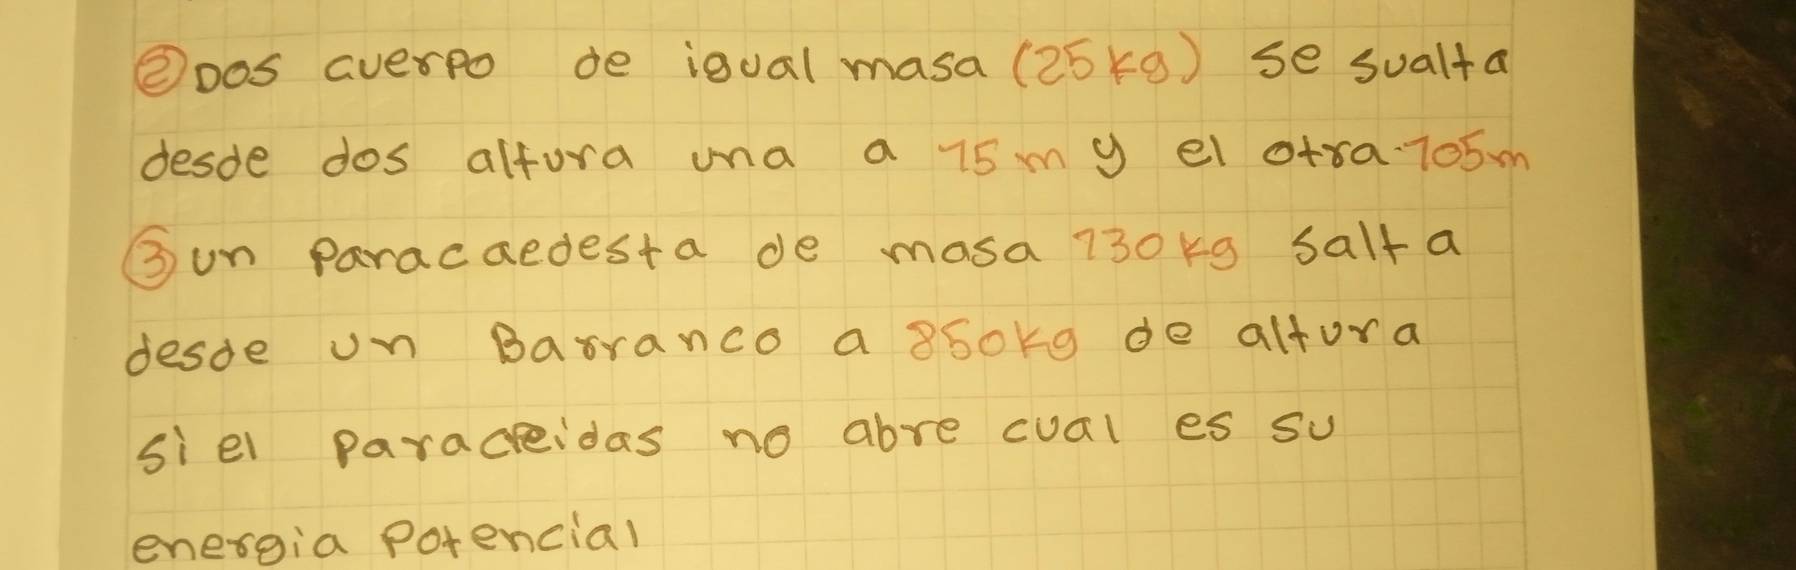 ② Dos cuerpo de igual masa (25kg) se sualta
desde dos altura una a 15m y el otra 105m
③ un paracaedesta de masa 130kg salta
desde un Barranco a 850kg de altura
si el paraceidas no abre cual es su
energia potencial